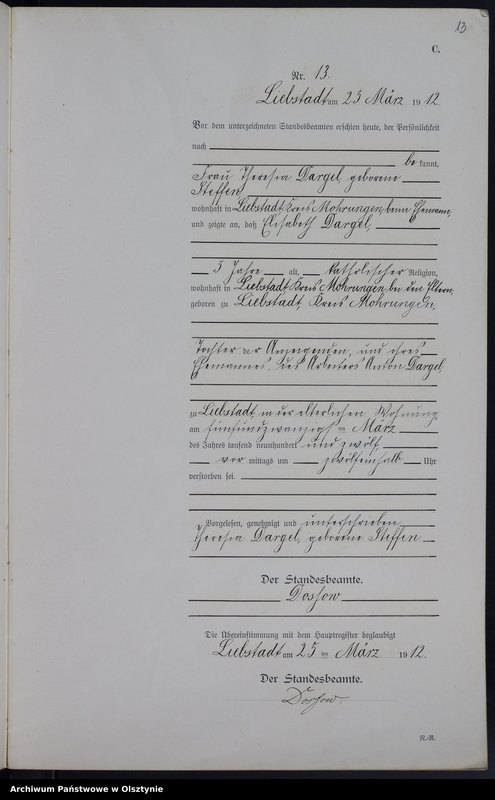 13
C.
Nr. 13.
Liebstadt am 25 März 1912.
Vor dem unterzeichneten Standesbeamten erschien heute, der Persönlichkeit
nach
be kannt,
Frau Theresia Dargel, geborene
Steffen
wohnhaft in Liebstadt Kreis Mohrungen, beim Ehemann,
und zeigte an, daß Elisabeth Dargel,
5 Jahre alt, katholischer Religion,
wohnhaft in Liebstadt Kreis Mohrungen, bei den Eltern,
geboren zu Liebstadt, Kreis Mohrungen,
Tochter der Anzeigenden, und ihres
Ehemannes, des Arbeiters Anton Dargel,
zu Liebstadt, in der elterlichen Wohnung,
am fünfundzwanzigsten März
des Jahres tausend neunhundert und zwölf,
vor mittags um Uhr
verstorben sei.
Vorgelesen, genehmigt und unterschrieben
Theresia Dargel, geborene Steffen
Der Standesbeamte.
Doskow
Die Übereinstimmung mit dem Hauptregister beglaubigt
Liebstadt am 25 ten März 1912.
Der Standesbeamte.
Doskow.
N.-R.
Archiwum Państwowe w Olsztynie